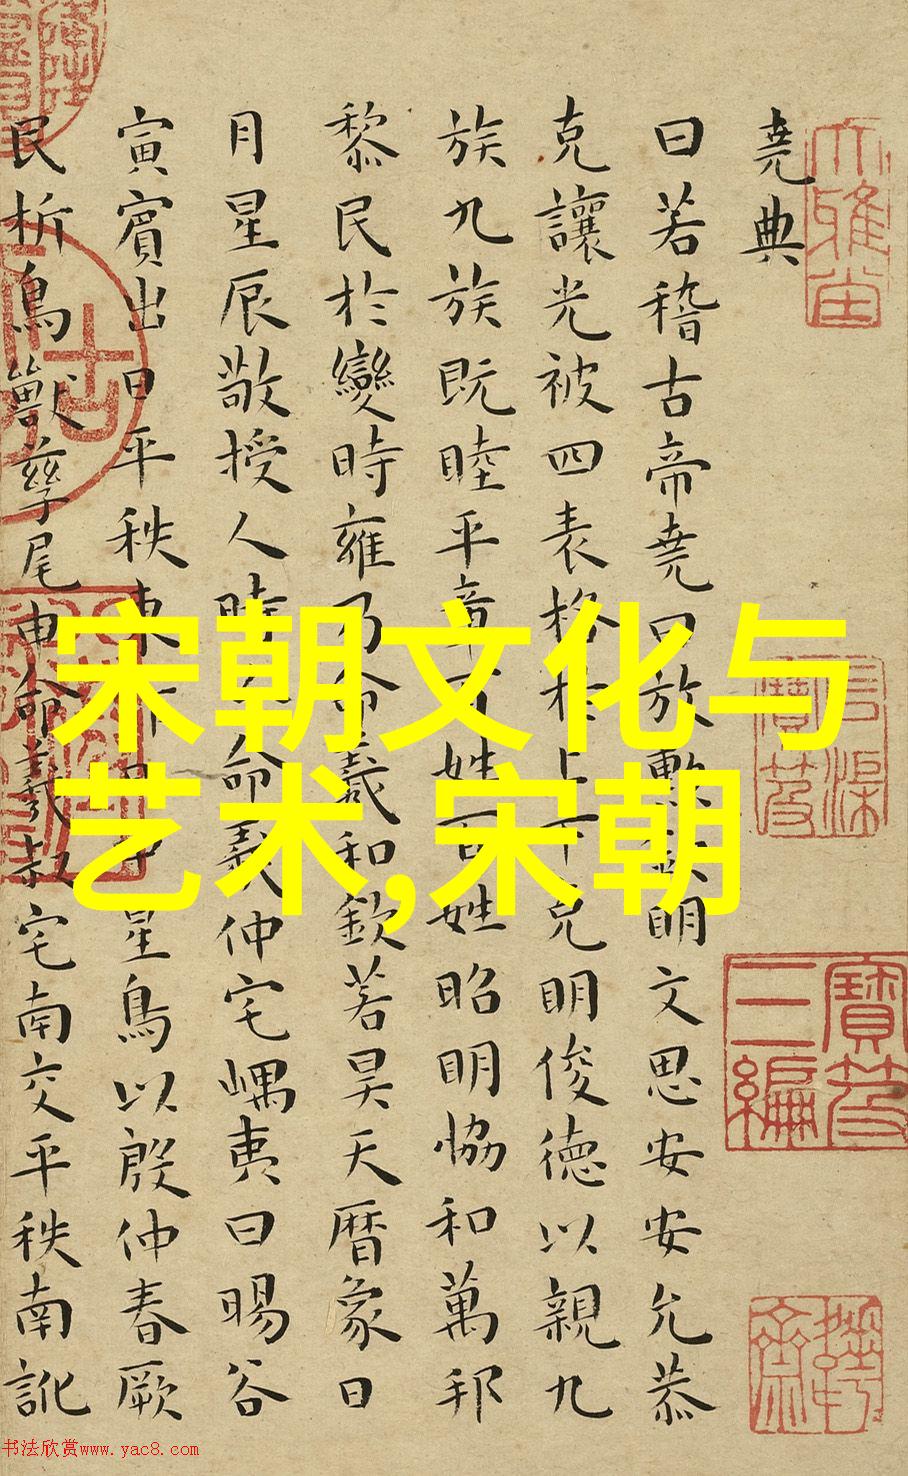 堯典
曰若稽古帝堯曰放勳欽明文思安安允恭
克讓光被四表格於上下克明俊德以親九
族九族既睦平章百姓百姓昭明恊和萬邦
黎民於變時雍乃命羲和欽若昊天暦象日
月星辰敬授人時分命羲仲宅嵎夷曰暘谷
寅賓出日平秩東作日中星鳥以殷仲春厥
民析鳥獸孳尾申命羲叔宅南交平秩南訛
寶笈
三編
宋朝文化与
艺术,宋朝
书法欣赏www.yac8.com